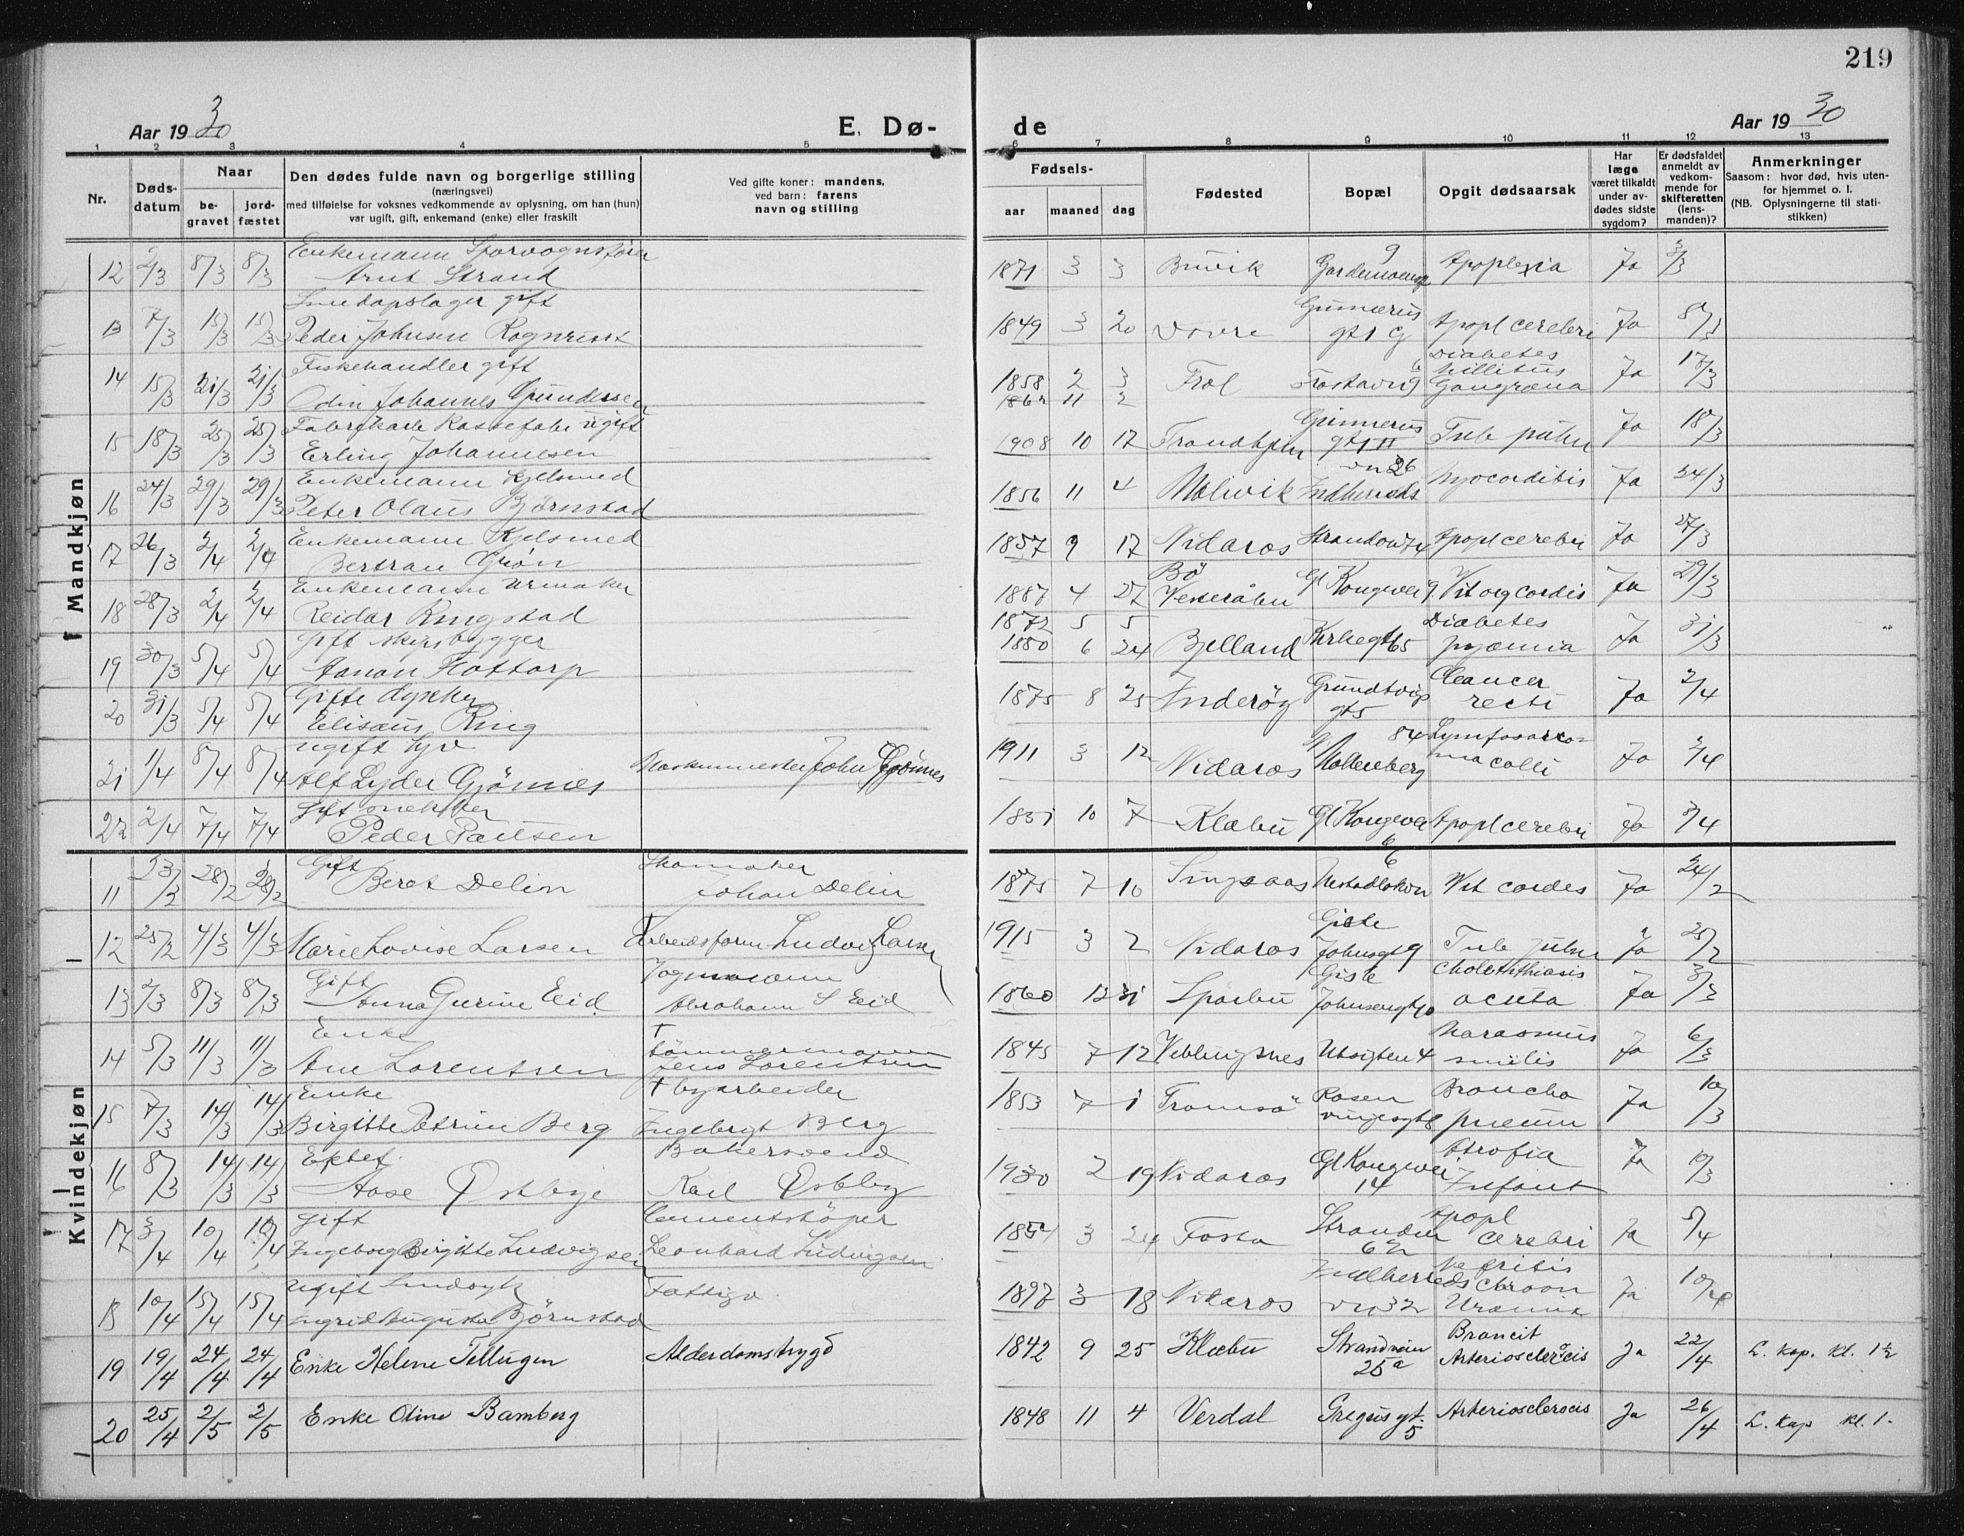 219
Aar 1930 E. Dø- de Aar 1930
1 2 3 4 5 6 7 8 9 10 11 12 13
Nr. Døds-datum Naar be-gravet jord-fæstet
Den dødes fulde navn og borgerlige stilling
(næringsvei)
med tilføielse for voksnes vedkommende av oplysning, om han (hun)
var ugift, gift, enkemand (enke) eller fraskilt
Ved gifte koner: mandens,
ved barn: farens
navn og stilling
Fødsels- aar maaned dag Fødested Bopæl Opgit dødsaarsak
Har læge været tilkaldt under av-dødes sidste sygdom?
Er dødsfaldet anmeldt av vedkom-mende for skifteretten (lens-manden)?
Anmerkninger
Saasom: hvor død, hvis uten-for hjemmet o. l.
(NB. Oplysningerne til stati-stikken)
Mandkjøn
12 2/3 8/3 8/3 Enkemann Sporvognsfører Arnt Strand 1871 3 3 Buvik Apoplexia Ja 3/3
13 7/3 15/3 15/3 gift Peder Johnsen 1849 3 20 Dovre Gunnerus gt 1 G Apopl cerebri Ja 8/3
14 15/3 21/3 21/3 Fiskehandler gift Odin Johannes Gundersen 1858 2 3 Frol Diabetes Gangræna Ja 17/3
1862 11 2
15 18/3 25/3 25/3 ugift Erling Johannesen 1908 10 17 Trondhjem Gunnerus gt 11 Tub pulm Ja 18/3
16 24/3 29/3 29/3 Enkemann Peter Olaus Bjørnstad 1856 11 4 Malvik Indhereds vn 26 Myocarditis Ja 24/3
17 26/3 2/4 2/4 Enkemann Kjelsmed Bertran Grøn 1857 9 17 Nidaros Apopl cerebri Ja 27/3
18 28/3 2/4 2/4 Enkemann Urmaker Reidar Ringstad 1887 4 27 Bø Vesterålen Gl Kongevei 9 Vit org cordis Ja 29/3
1872 5 5
19 30/3 5/4 5/4 Gift skipsbygger 1880 6 24 Bjelland Kirkegt 65 Diabetes pyæmia Ja 31/3
20 31/3 5/4 5/4 Gifte dykker Elisæus Ring 1875 8 25 Inderøy Grundtvigs gt 5 Cancer recti Ja 2/4
21 1/4 8/4 8/4 ugift Alf Lyder Gjønnes Maskinmester John Gjønnes 1911 3 12 Nidaros Møllenberg 84 Lymfosarcoma colli Ja 2/4
22 2/4 7/4 7/4 Gift snekker Peder Paulsen 1851 10 7 Klæbu Gl Kongevei Apopl cerebri Ja 3/4
Kvindekjøn
11 23/2 28/2 28/2 Gift Beret Delin Skomaker Johan Delin 1875 7 10 Singsaas Vit cordis Ja 24/2
12 25/2 4/3 4/3 Marie Lovise Larsen Arbeidsform Ludvig Larsen 1915 3 2 Nidaros Giske Johnsgt 9 Tub pulm Ja 25/2
13 2/3 8/3 8/3 Gift Anna Gurine Eid Vognmann Abraham S Eid 1860 12 31 Sparbu Giske Johnsengt 10 Cholethiasis acuta Ja 3/3
14 5/3 11/3 11/3 Enke Ane Lorentsen † tømmermann Jens Lorentsen 1845 7 12 Veblungsnes Utsigten 4 Marasmus senilis Ja 6/3
15 7/3 14/3 14/3 Enke Birgitte Petrine Berg † byarbeider Ingebrigt Berg 1853 7 1 Tromsø Rosenvingesgt 8 Broncho pneum Ja 10/3
16 8/3 14/3 14/3 Ektef. Aase Østbye Bakersvend Karl Østby 1930 2 19 Nidaros Gl Kongevei 14 Atrofia Infant Ja 10/3
17 3/4 10/4 10/4 Gift Ingeborg Birgitte Ludvigsen Cementstøper Leonhard Ludvigsen 1854 3 24 Fosta Strandvn 62 Apopl cerebri Ja 5/4
18 10/4 15/4 15/4 ugift Sindsyk Ingrid Augusta Bjørnstad Fattigv. 1897 3 18 Nidaros Indhereds vn 32 Nefritis chroon Uræmia Ja 10/4
19 19/4 24/4 24/4 Enke Helene Tellugen Alderdomstrygd 1842 9 25 Klæbu Strandveien 25 a Broncit Arteriosclerocis Ja 22/4 L. kap. kl. 1½
20 25/4 2/5 2/5 Enke Oline Bamberg 1848 11 4 Verdal Gregus gt. 5 Arteriosclerocis Ja 26/4 L. kap kl. 1-